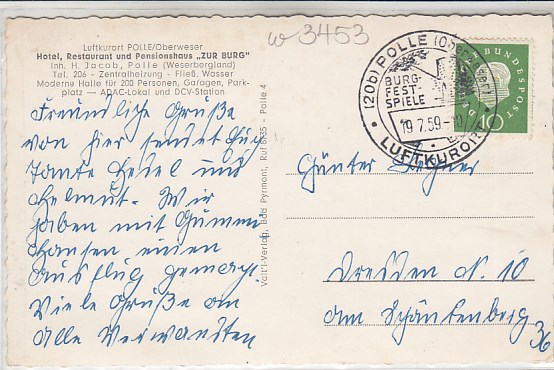 Luftkurort POLLE/Oberweser
Hotel, Restaurant und Pensionshaus „ZUR BURG"
Inh. H. Jacob, Polle (Weserbergland)
Tel. 206 - Zentralheizung - Fließ. Wasser
Moderne Halle für 200 Personen, Garagen, Park-
platz — ADAC-Lokal und DCV-Station
w 3453
(20b) POLLE
BURG-
FEST-
SPIELE
19.7.59.-10
LUFTKURORT
DEUTSCHE BUNDESPOST
10
Freundliche Grüße
von hier sendet Euch
Tante Hedel und
Helmut. Wir
haben mit Gummer
Hansen einen
Ausflug gemacht.
Viele Grüße an
alle Verwandten
Valtl-Verlag, Bad Pyrmont, Ruf 8135 - Polle 4
Günter
Dresden N. 10
am Schänkenberg
36